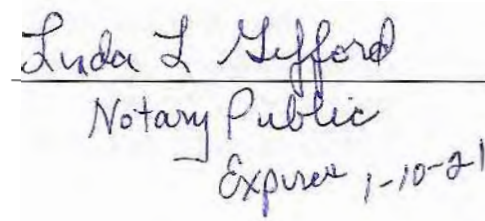 Linda L Gifford
Notary Public
Expires 1-10-21